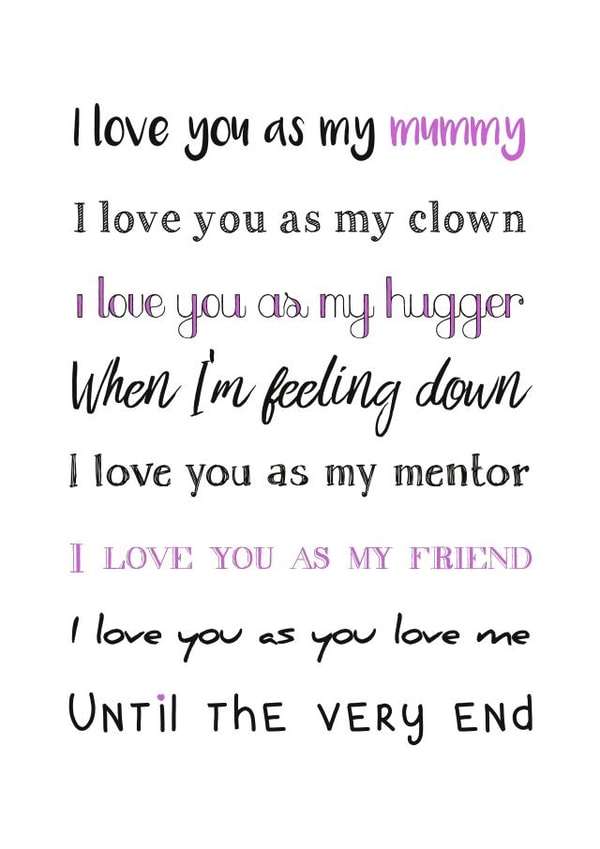 I love you as my mummy
I love you as my clown
I love you as my hugger
When I'm feeling down
I love you as my mentor
I LOVE YOU AS MY FRIEND
I love you as you love me
UNTil ThE VERy ENd